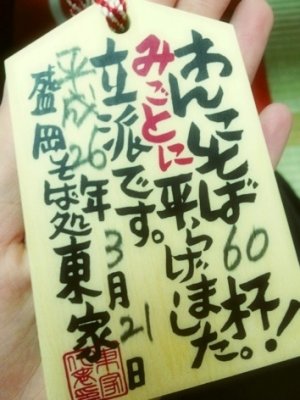 わんこそば60杯!!
みごとに平らげました。
立派です。
平成26年3月21日
盛岡そば処東家